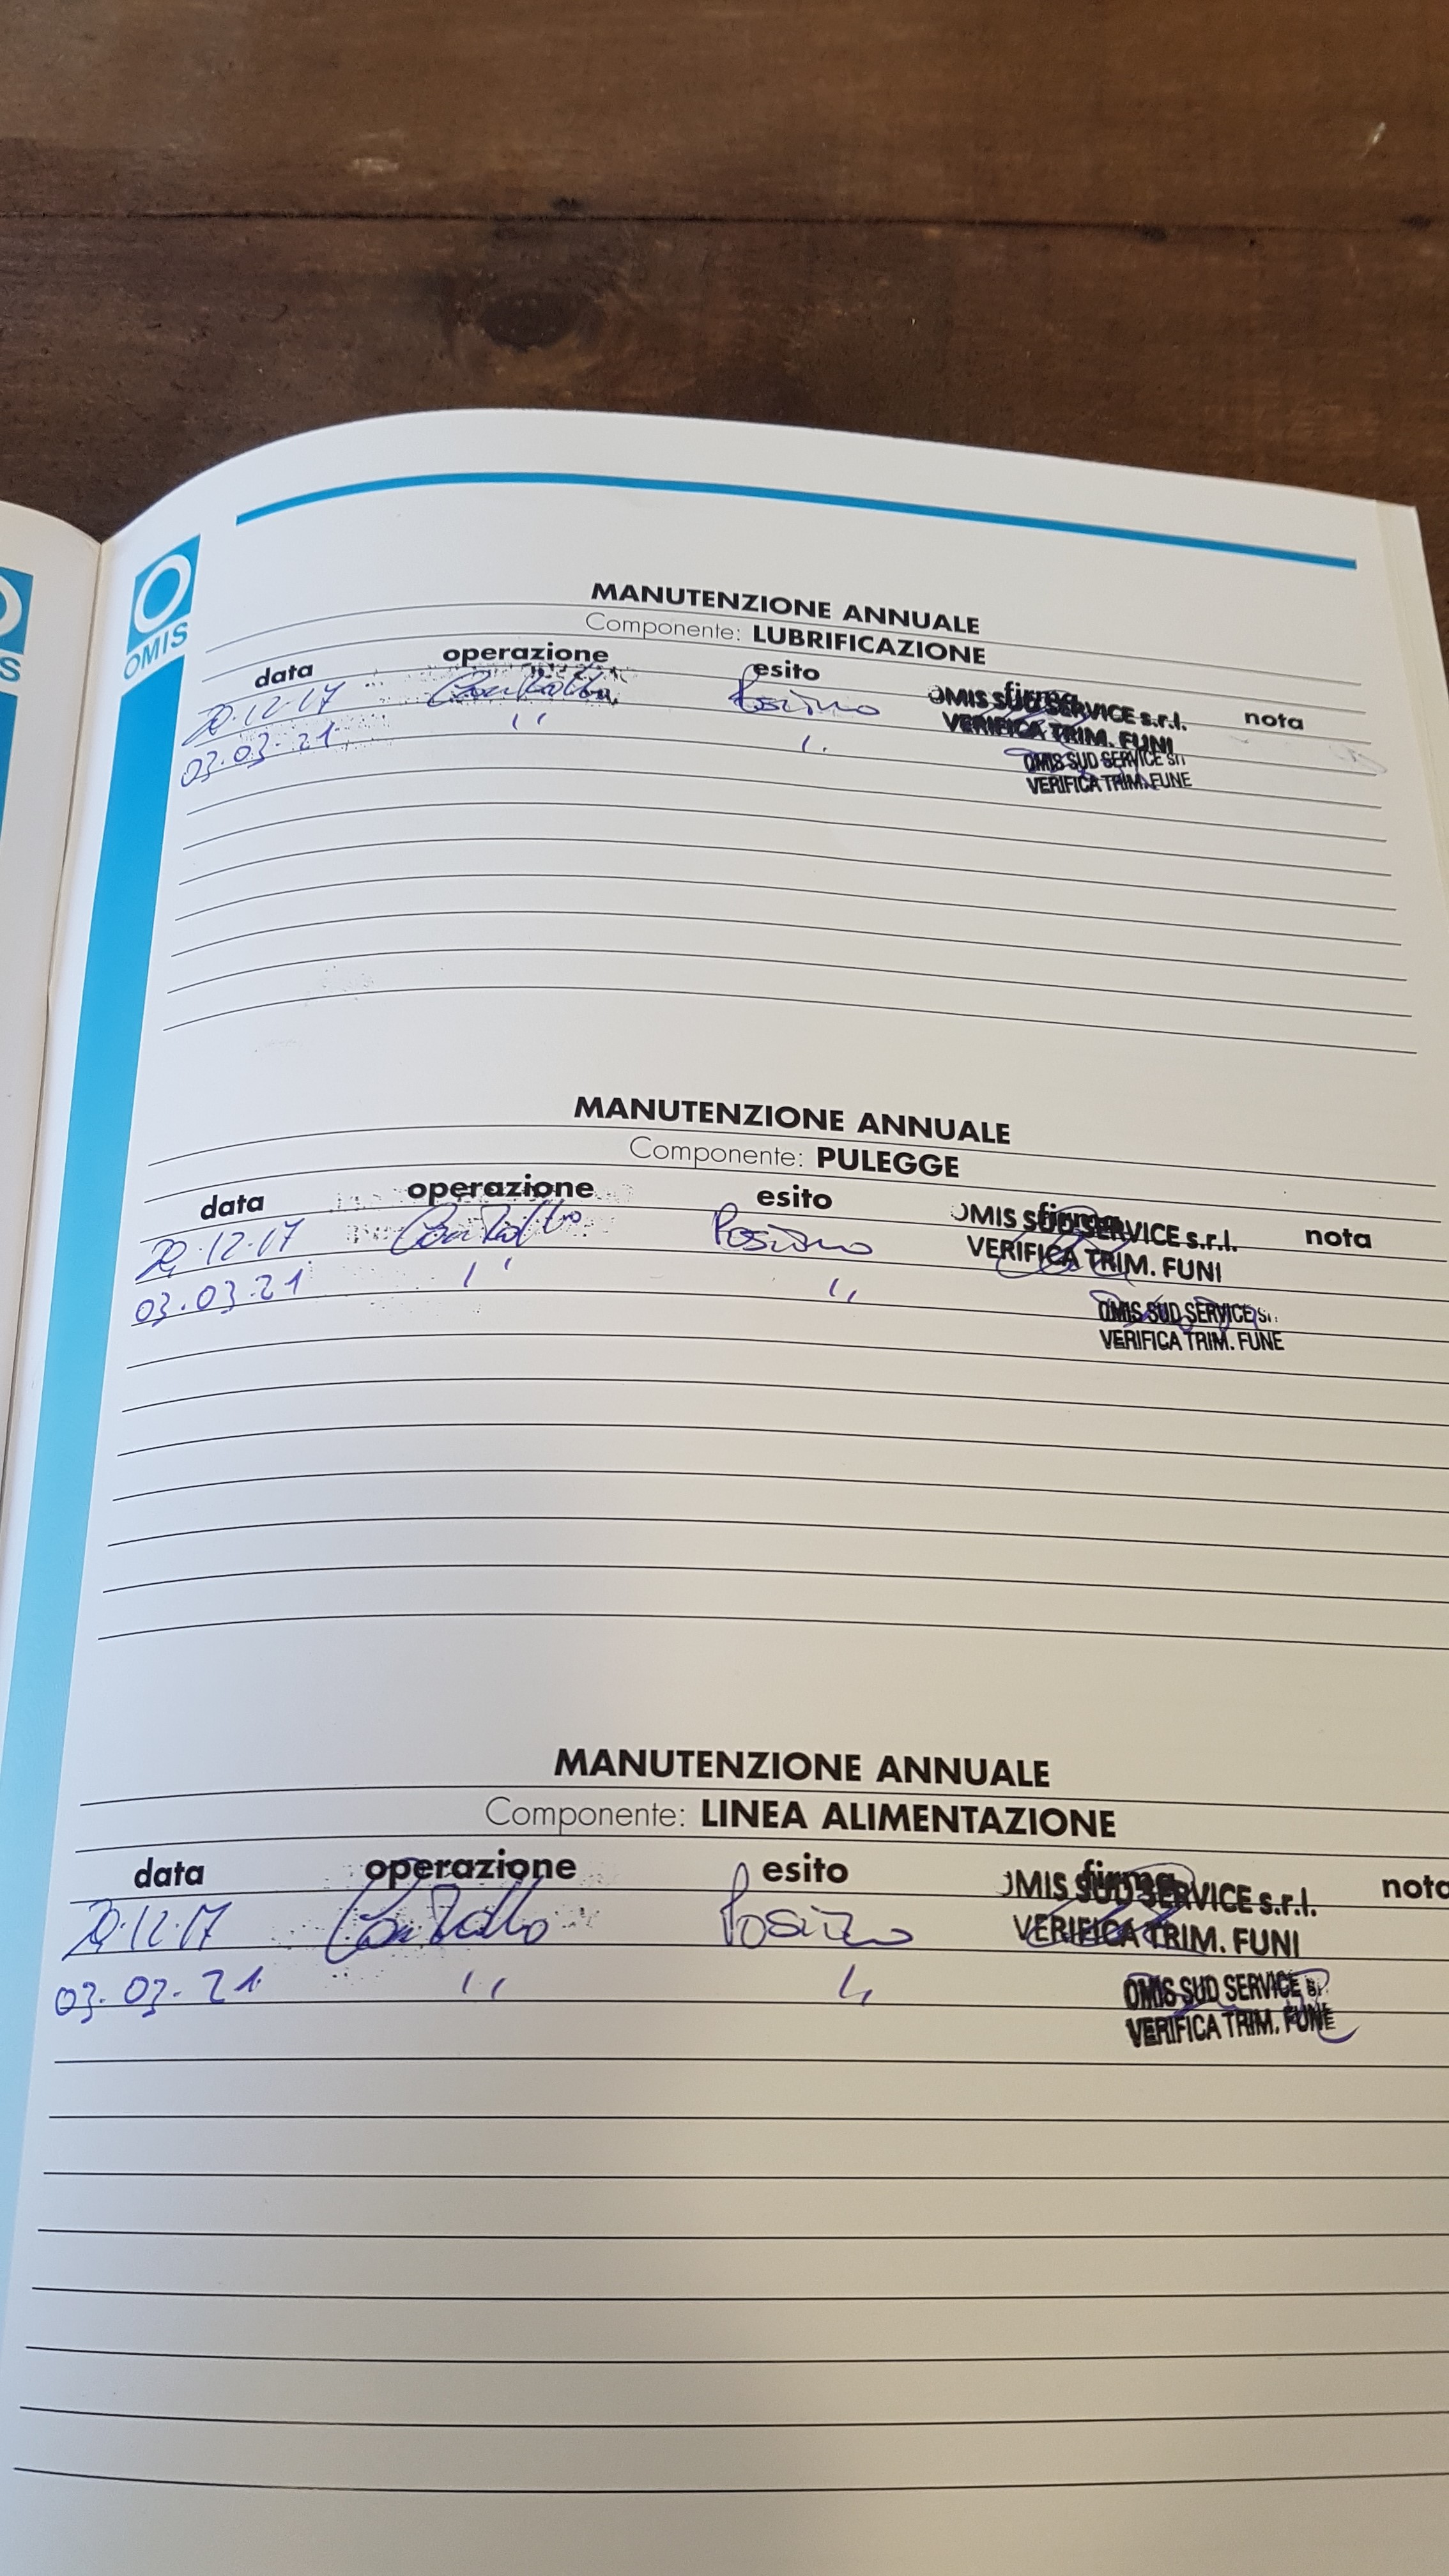 OMIS
S
MANUTENZIONE ANNUALE
Componente: LUBRIFICAZIONE
data operazione esito firma nota
20.12.17 Controllo Positivo OMIS SUD SERVICE s.r.l.
VERIFICA TRIM. FUNI
03.03.21 " " OMIS SUD SERVICE srl
VERIFICA TRIM. FUNE
MANUTENZIONE ANNUALE
Componente: PULEGGE
data operazione esito firma nota
20.12.17 Controllo Positivo OMIS SUD SERVICE s.r.l.
VERIFICA TRIM. FUNI
03.03.21 " " OMIS SUD SERVICE
VERIFICA TRIM. FUNE
MANUTENZIONE ANNUALE
Componente: LINEA ALIMENTAZIONE
data operazione esito firma nota
20.12.17 Controllo Positivo OMIS SUD SERVICE s.r.l.
VERIFICA TRIM. FUNI
03.03.21 " " OMIS SUD SERVICE
VERIFICA TRIM. FUNE